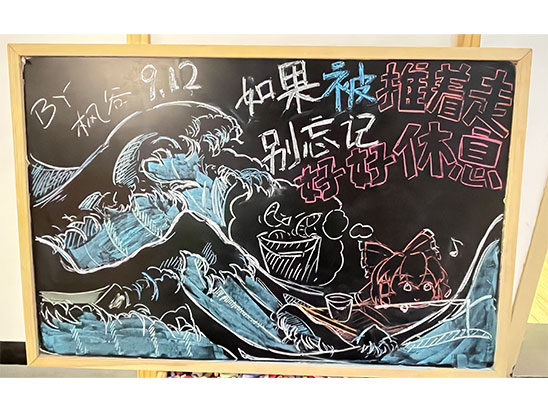 BY 枫谷 9.12
如果被推着走
别忘记
好好休息